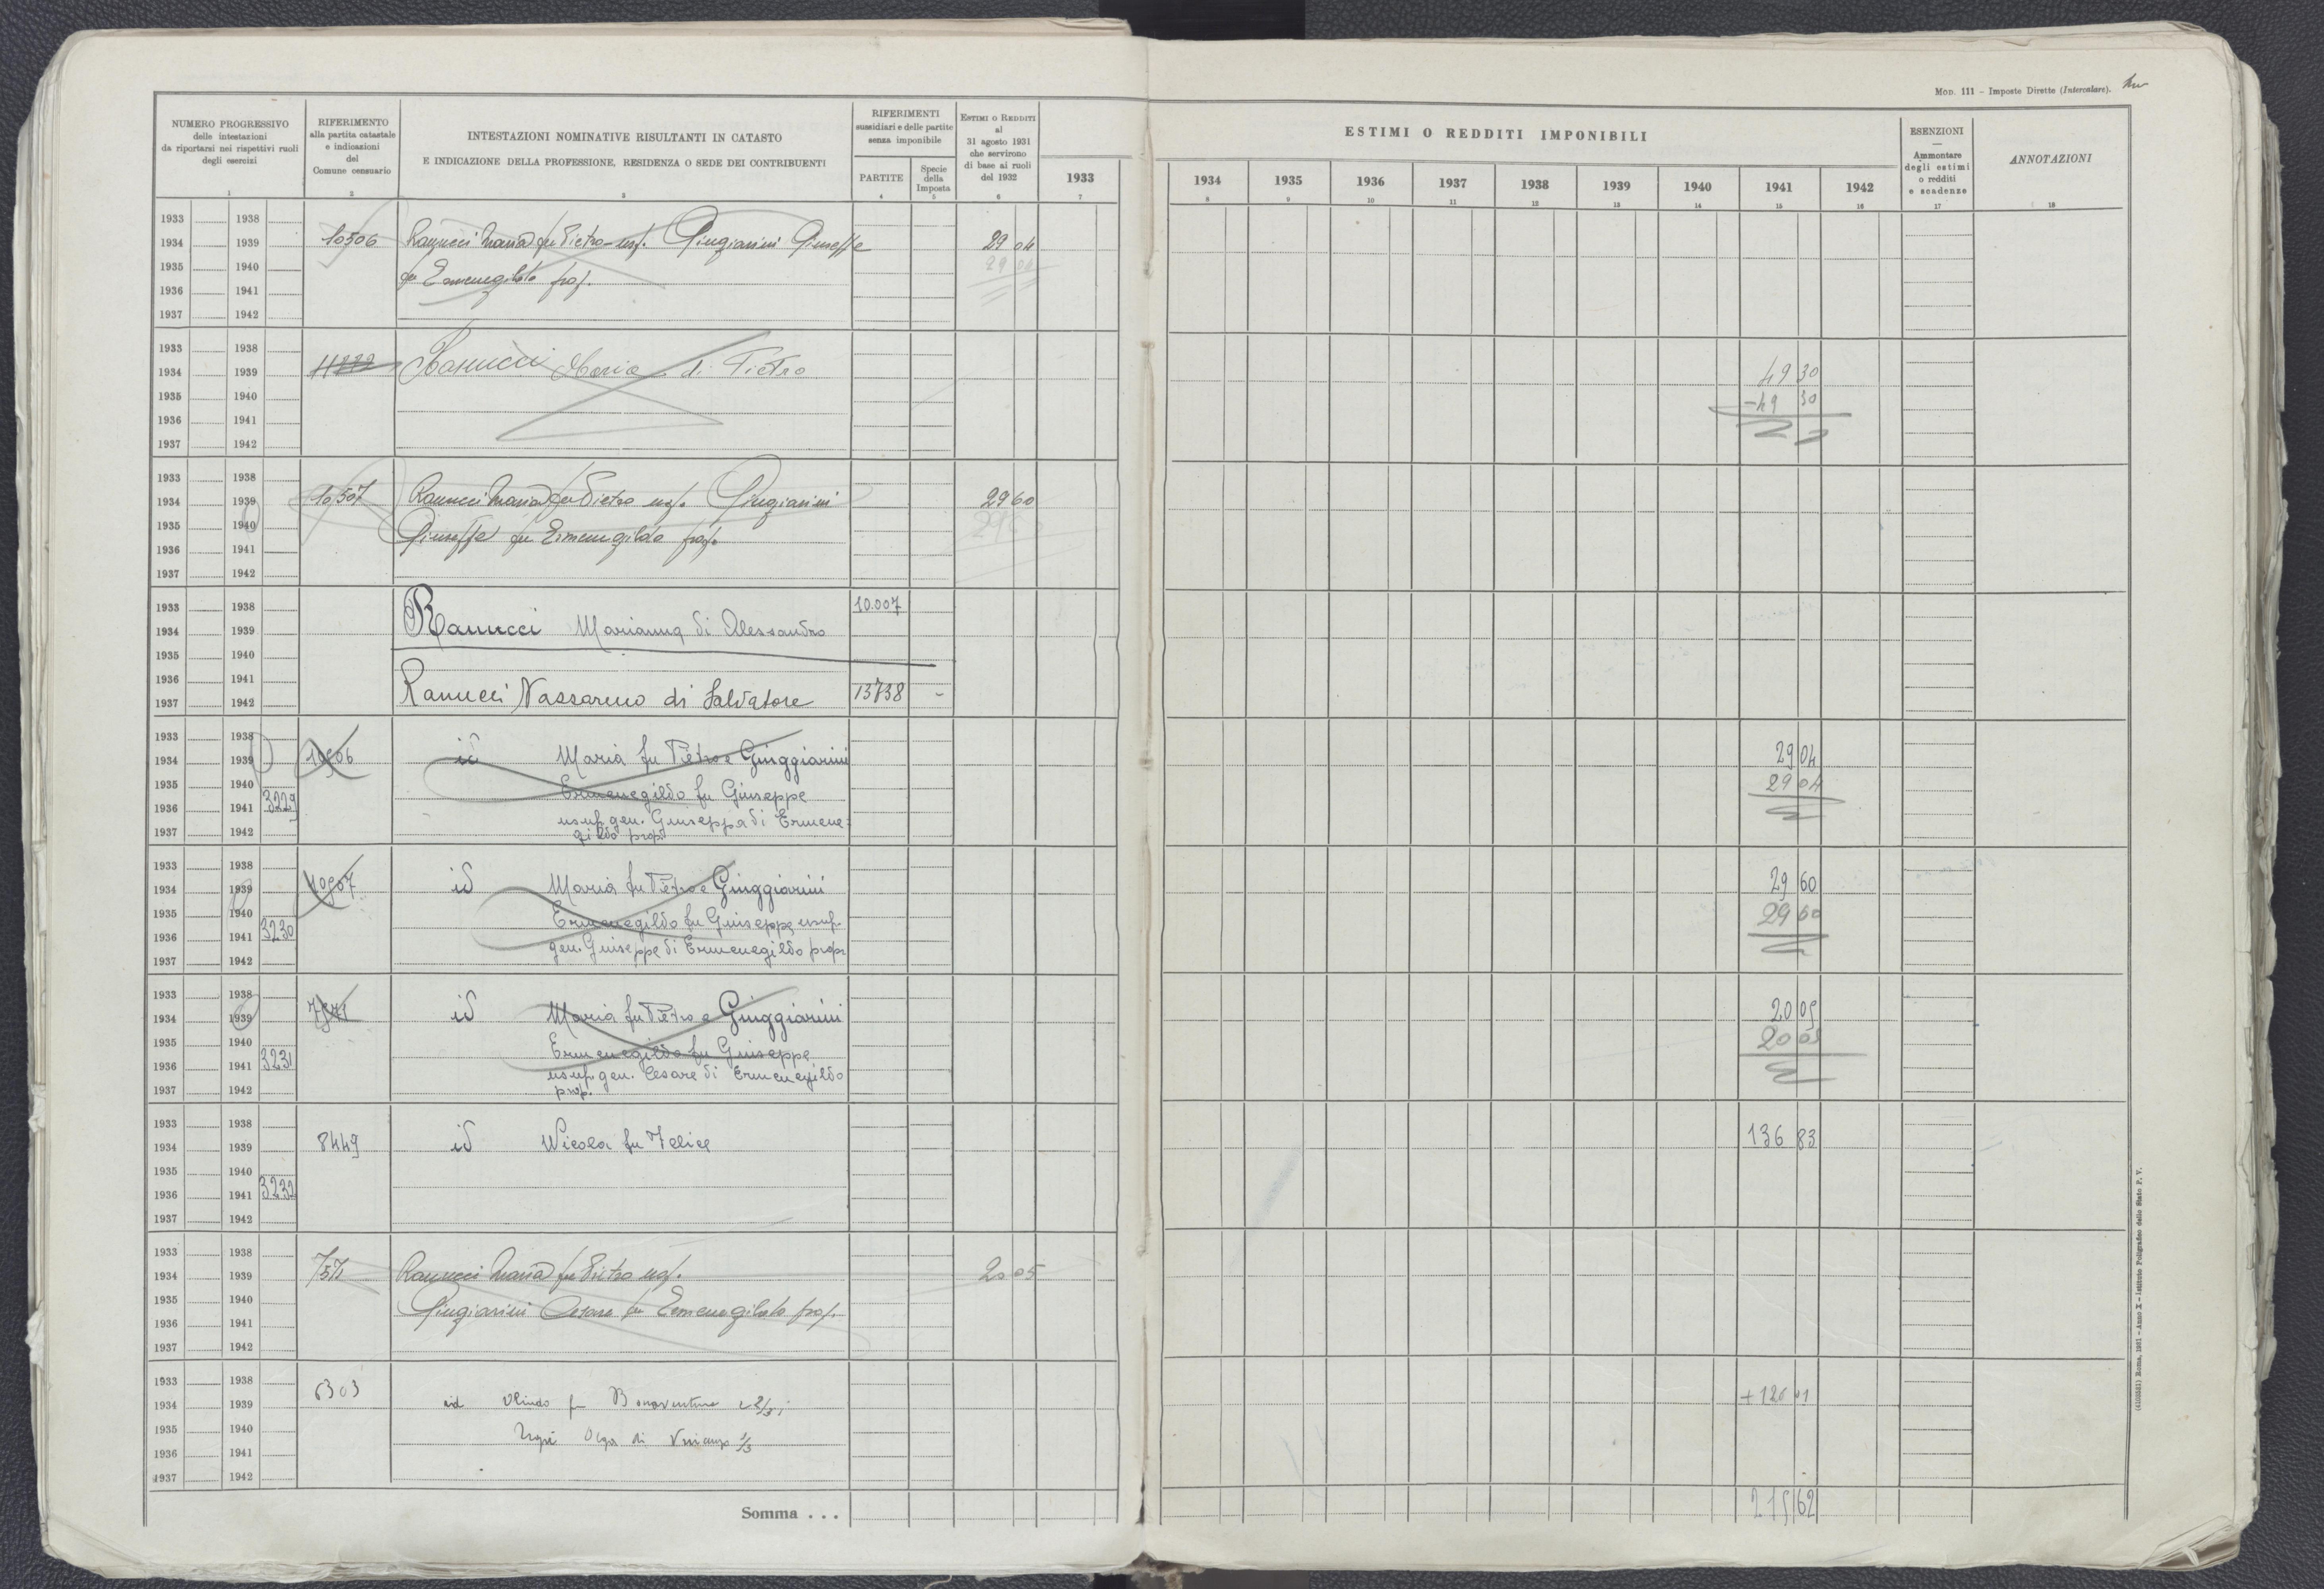 Mod. 111 – Imposte Dirette (Intercalare).
NUMERO PROGRESSIVO
delle intestazioni
da riportarsi nei rispettivi ruoli
degli esercizi
1
RIFERIMENTO
alla partita catastale
e indicazioni
del
Comune censuario
2
INTESTAZIONI NOMINATIVE RISULTANTI IN CATASTO
E INDICAZIONE DELLA PROFESSIONE, RESIDENZA O SEDE DEI CONTRIBUENTI
3
RIFERIMENTI
sussidiari e delle partite
senza imponibile
PARTITE
4
Specie
della
Imposta
5
ESTIMI O REDDITI
al
31 agosto 1931
che servirono
di base ai ruoli
del 1932
6
1933
7
ESTIMI O REDDITI IMPONIBILI
1934 1935 1936 1937 1938 1939 1940 1941 1942
8 9 10 11 12 13 14 15 16
ESENZIONI
—
Ammontare
degli estimi
o redditi
e scadenze
17
ANNOTAZIONI
18
1933 1938
1934 1939 10506 Ranucci Maria fu Pietro usf. Giugiarini Giuseppe 29 04
1935 1940 fu Ermenegildo prop. 29 04
1936 1941
1937 1942
1933 1938
1934 1939 11222 Ranucci Maria di Pietro 49 30
1935 1940 -49 30
1936 1941
1937 1942
1933 1938
1934 1939 10507 Ranucci Maria fu Pietro usf. Giugiarini 29 60
1935 1940 Giuseppe fu Ermenegildo prop.
1936 1941
1937 1942
1933 1938 10.007
1934 1939 Ranucci Marianna di Alessandro
1935 1940
1936 1941
1937 1942 Ranucci Nazzareno di Salvatore 13738 -
1933 1938
1934 1939 10506 id Maria fu Pietro e Giuggiarini 29 04
1935 1940 Ermenegildo fu Giuseppe 29 04
1936 1941 3229 usuf. gen. Giuseppa di Ermene=
1937 1942 gildo prop.
1933 1938
1934 1939 10507 id Maria fu Pietro e Giuggiarini 29 60
1935 1940 Ermenegildo fu Giuseppe usuf. 29 60
1936 1941 3230 gen. Giuseppe di Ermenegildo propr
1937 1942
1933 1938
1934 1939 7571 id Maria fu Pietro e Giuggiarini 20 05
1935 1940 Ermenegildo fu Giuseppe 20 05
1936 1941 3231 usuf. gen. Cesare di Ermenegildo
1937 1942 prop.
1933 1938
1934 1939 8449 id Nicola fu Felice 136 83
1935 1940
1936 1941 3232
1937 1942
1933 1938
1934 1939 7571 Ranucci Maria fu Pietro usf. 20 05
1935 1940 Giugiarini Cesare fu Ermenegildo prop.
1936 1941
1937 1942
1933 1938 6303
1934 1939 id Olindo fu Bonaventura 2/3;
1935 1940 Olga di 1/3
1936 1941
1937 1942
Somma . . . 215 62
(4103321) Roma, 1931 – Anno X – Istituto Poligrafico dello Stato P. V.